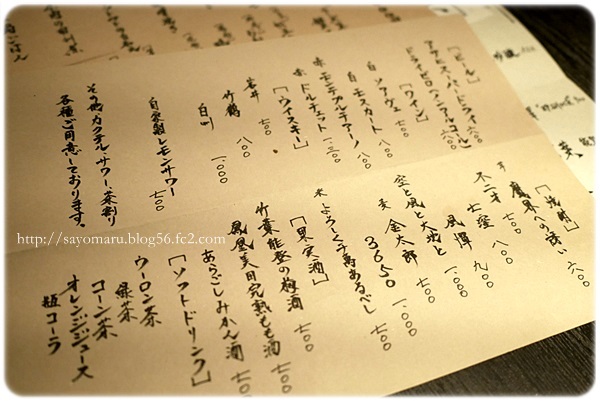 「ビール」
アサヒスーパードライ 六〇〇
ドライゼロ(ノンアルコール) 六〇〇
「ワイン」
白 ソアヴェ 八〇〇
白 モスカート 八〇〇
赤 モンテプルチアーノ 八〇〇
赤 ドルチェット 一三〇〇
「ウイスキー」
岩井 七〇〇
竹鶴 八〇〇
白州 一、〇〇〇
自家製レモンサワー 七〇〇
その他カクテル、サワー、茶割り
各種ご用意しております。
「焼酎」
芋 魔界への誘い 六〇〇
不二才 七〇〇
七窪 八〇〇
風憚 九〇〇
空と風と大地と
麦 金太郎 七〇〇
3650 一、〇〇〇
米 よろしく千萬あるべし 七〇〇
「果実酒」
竹葉 能登の梅酒 七〇〇
鳳凰美田完熟もも酒 七〇〇
あらごしみかん酒 七〇〇
「ソフトドリンク」
ウーロン茶
緑茶
コーン茶
オレンジジュース
瓶コーラ
http://sayomaru.blog56.fc2.com